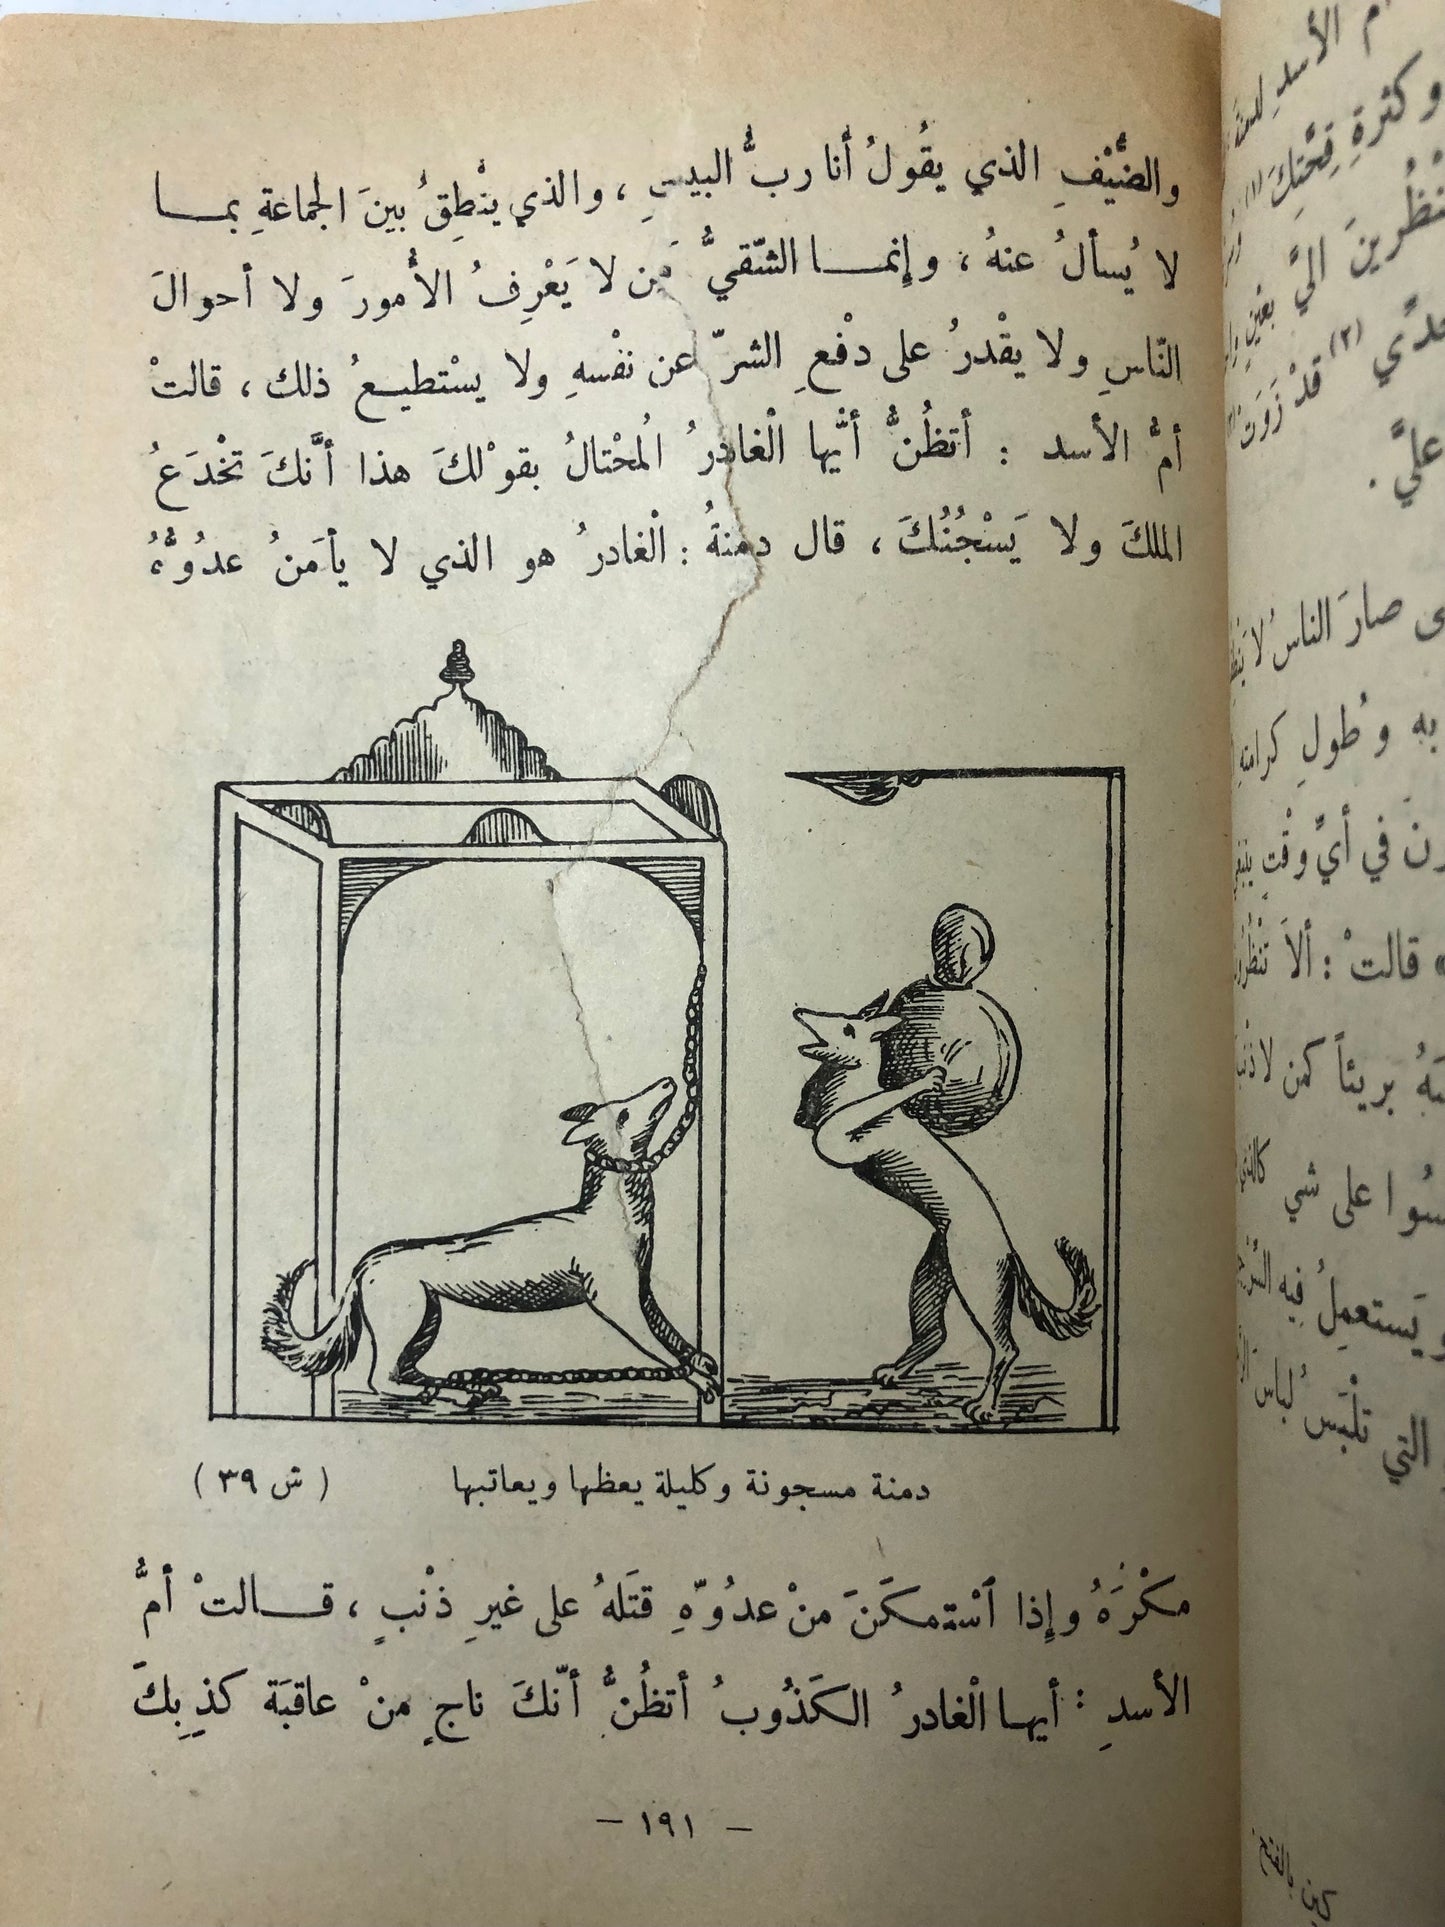 والضَّيْفِ الذي يقُولُ أنا ربُّ البيتِ ، والذي ينْطِقُ بينَ الجماعةِ بمـــا
لا يُسألُ عنهُ ، وإنمـــا الشّقيُّ مَن لا يَعْرِفُ الأُمورَ ولا أحوالَ
النّاسِ ولا يقْدرُ على دفْعِ الشرّ عن نفْسهِ ولا يسْتطيعُ ذلك ، قالتْ
أمُّ الأسد : أتظُنُّ أيُّها الْغادرُ المُحْتالُ بقوْلكَ هذا أنَّكَ تخْدَعُ
الملكَ ولا يَسْجُنُكَ ، قال دمنةُ : الْغادرُ هو الذي لا يأمَنُ عدُوُّهُ
دمنة مسجونة وكليلة يعظها ويعاتبها ( ش ٣٩ )
مكْرَهُ وإذا ٱسْتمكَنَ منْ عدُوّهِ قتَلهُ على غيرِ ذنْبٍ ، قـــالتْ أمُّ
الأسدِ : أيهـا الْغادرُ الكَذُوبُ أتظُنُّ أنّكَ ناجٍ منْ عاقبَة كذِبِكَ
— ١٩١ —
أم الأسدِ
وكثرةِ قِحَتِكَ (١)
إليَّ بعَينِ
(٢) قدْ زَوَتْ
عليَّ .
صارَ الناسُ لا
به وطُولِ كرامتهِ
في أيِّ وقْتٍ
قالتْ : ألاَ
بريئاً كمن لا
على شي كالذي
ويَستعمِلُ فيه
التي تلْبَسُ لباسَ